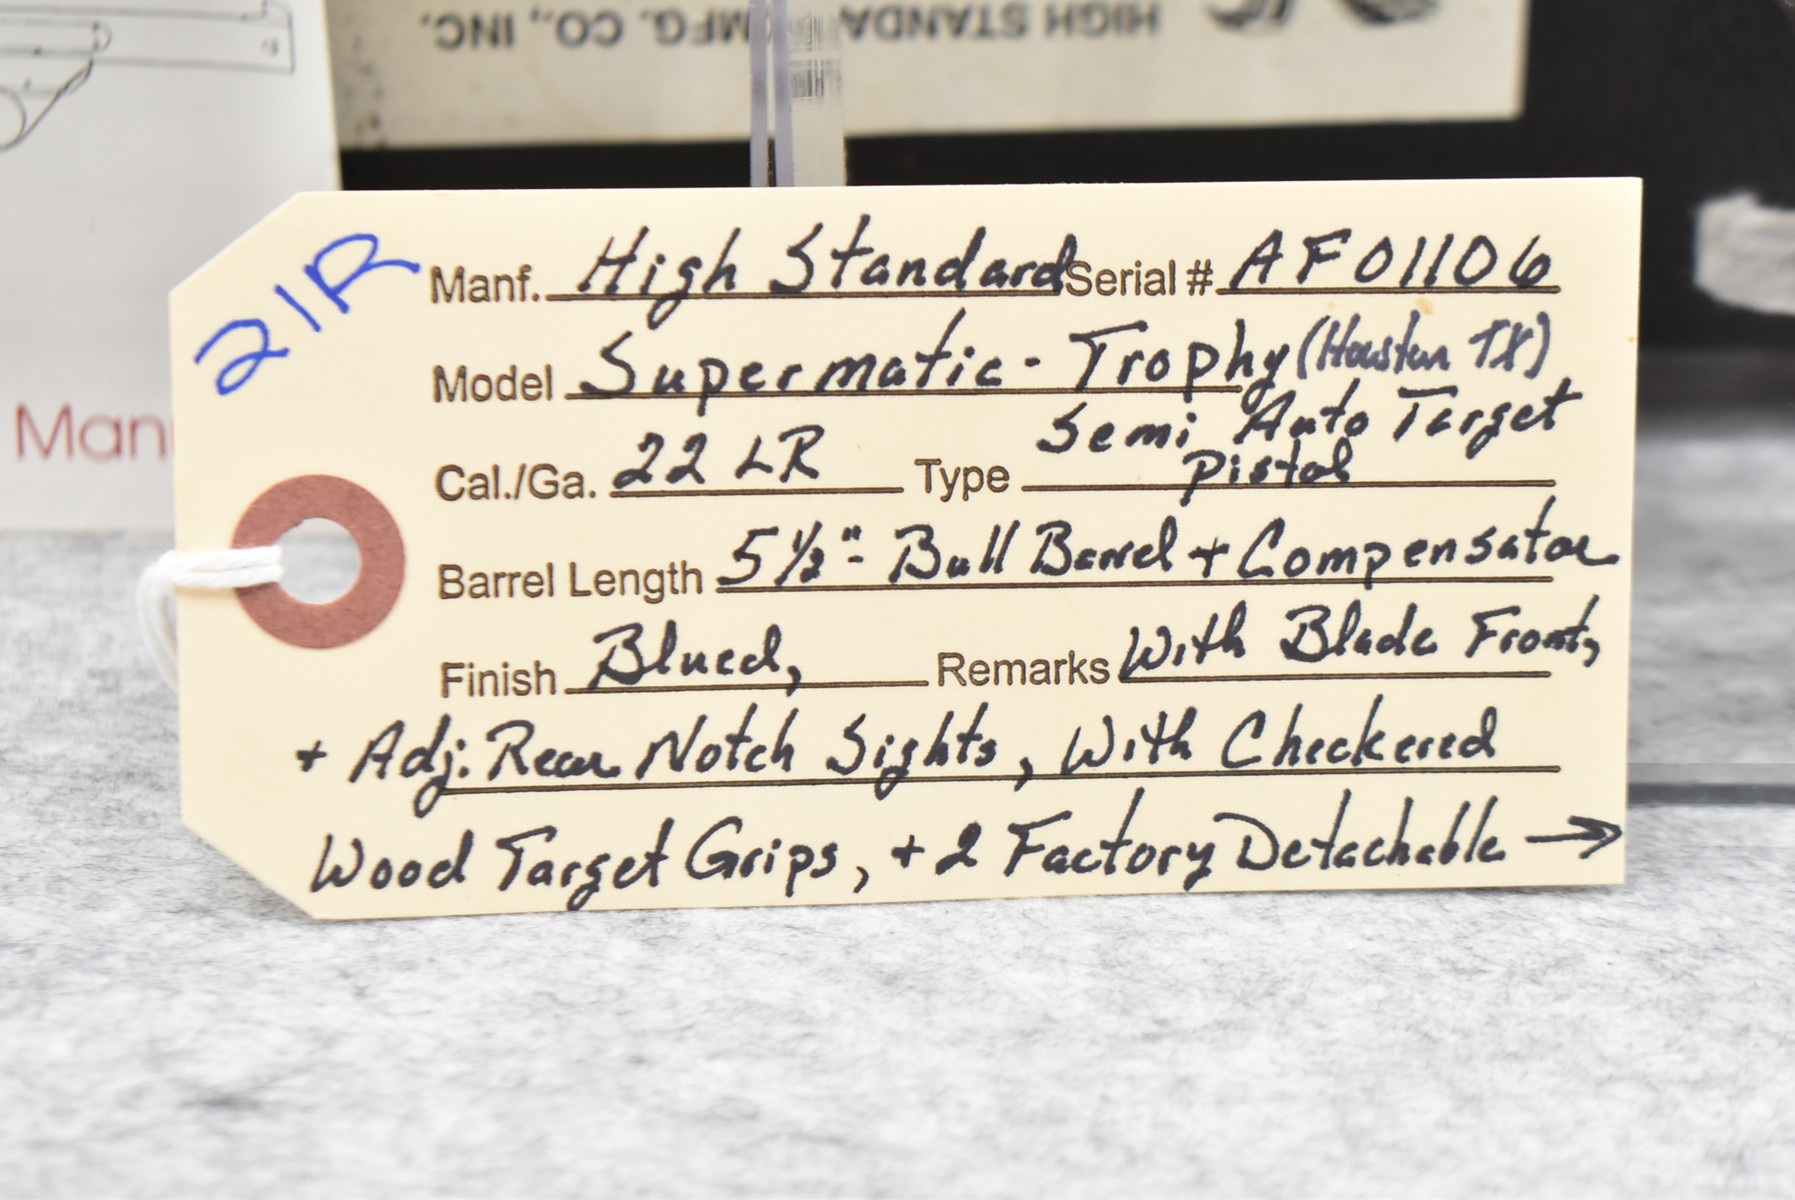 HIGH STANDA MFG. CO., INC.
Man
21R
Manf. High Standard Serial # AF01106
Model Supermatic - Trophy (Houston TX)
Cal./Ga. 22 LR Type Semi Auto Target Pistol
Barrel Length 5 1/2" - Bull Barrel + Compensator
Finish Blued, Remarks With Blade Front,
+ Adj. Rear Notch Sights, With Checkered
Wood Target Grips, + 2 Factory Detachable →